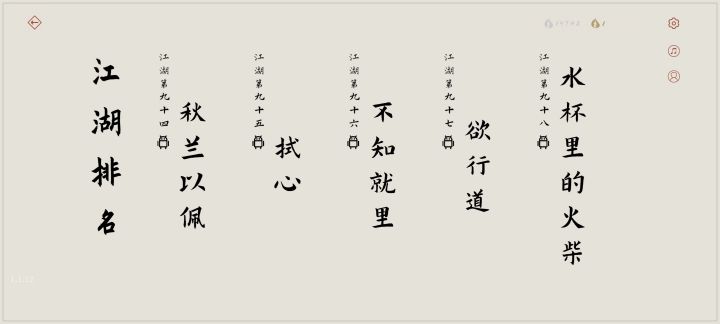 江湖排名
江湖第九十四
秋兰以佩
江湖第九十五
拭心
江湖第九十六
不知就里
江湖第九十七
欲行道
江湖第九十八
水杯里的火柴
1
1.1.12